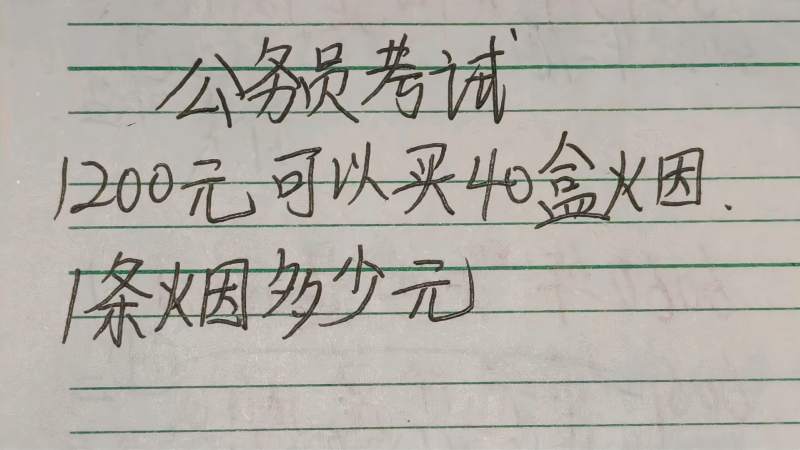 公务员考试
1200元可以买40盒烟.
1条烟多少元